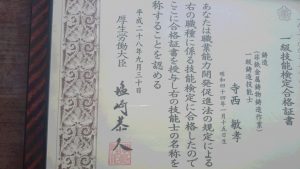 一級技能検定合格証書
鋳造
(非鉄金属鋳物鋳造作業)
一級鋳造技能士
寺西 敏孝
昭和四十四年一月十五日生
あなたは職業能力開発促進法の規定による
右の職種に係る技能検定に合格したので
ここに合格証書を授与し右の技能士の名称を
称することを認める
平成二十八年九月三十日
厚生労働大臣
塩崎恭久